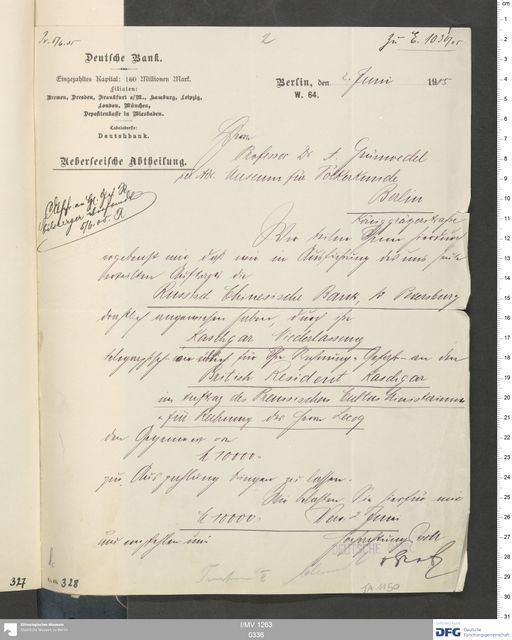 Pr. 5/6.05
2
Zu E. 1036/05
Deutsche Bank.
Eingezahltes Kapital: 160 Millionen Mark.
Filialen:
Bremen, Dresden, Frankfurt a/M., Hamburg, Leipzig,
London, München,
Depositenkasse in Wiesbaden.
Cabeladresse:
Deutschbank.
Ueberseeische Abtheilung.
Berlin, den 2. Juni 1905
W. 64.
Herrn
Professor Dr. A. Grünwedel
Museum für Völkerkunde
Berlin
Königgrätzerstraße
Wir teilen Ihnen hierdurch
ergebenst mit, daß wir in Ausführung des uns
erteilten Auftrages die
Russisch Chinesische Bank, St. Petersburg
drahtlich angewiesen haben, durch ihre
Kaschgar Niederlassung
telegraphisch für Ihre Rechnung u. Gefahr an den
British Resident Kaschgar
im Auftrag des Preussischen Cultus Ministeriums
für Rechnung des Herrn Lecoq
den Gegenwert von
M 10000.-
zur Auszahlung bringen zu lassen.
Wir belasten Sie hierfür mit
M 10000.- Val. 2 Juni
und empfehlen uns
Hochachtungsvoll
DEUTSCHE
327
328
I/MV 1263
0336
Ethnologisches Museum
Staatliche Museen zu Berlin
DFG
Deutsche
Forschungsgemeinschaft